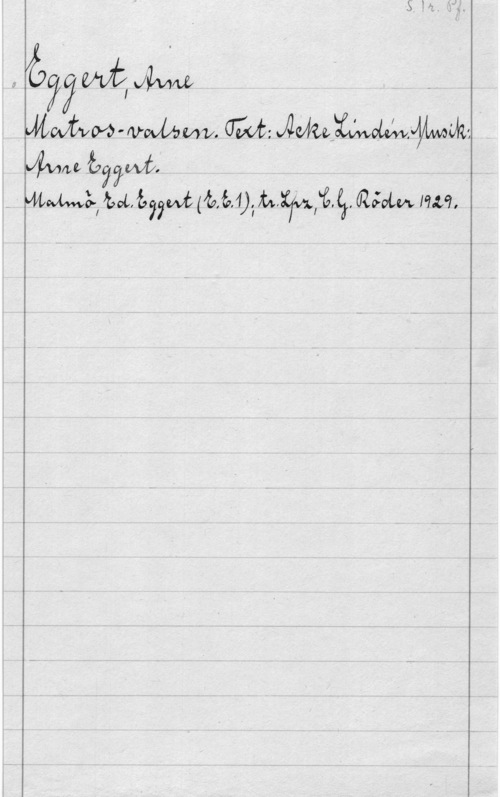 S. 1 r. Pf.
Eggert, Arne
Matros-valsen. Text: Acke Lindén. Musik:
Arne Eggert.
Malmö, Ed. Eggert (E.E.1); tr. Lpz, C.G. Röder 1929.